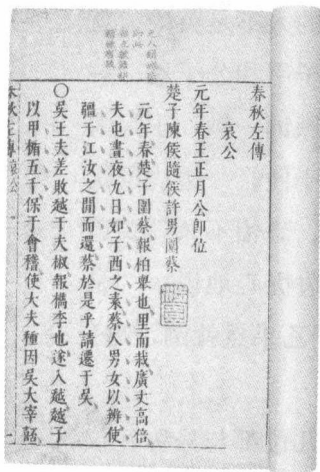 春秋左傳
哀公
元年春王正月公卽位
楚子陳侯隨侯許男圍蔡
元年春楚子圍蔡報柏舉也里而栽廣丈高倍
夫屯晝夜九日如子西之素蔡人男女以辨使
疆于江汝之間而還蔡於是乎請遷于吳
○吳王夫差敗越于夫椒報檇李也遂入越越子
以甲楯五千保于會稽使大夫種因吳大宰嚭
春秋左傳 哀公 一